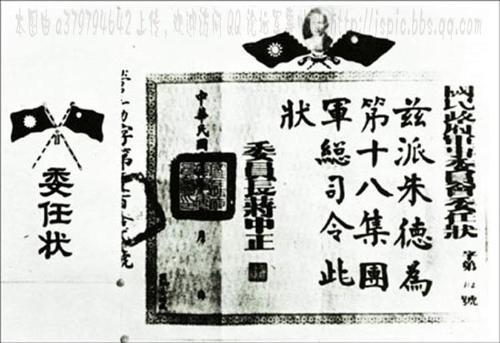 本图由 a379794642 上传，欢迎访问 QQ 论坛 http://ispic.bbs.qq.com
國民政府軍事委員會委任狀
字第 號
茲派朱德為
第十八集團
軍總司令此
狀
委員長蔣中正
中華民國 年 月
字第 號
委任状